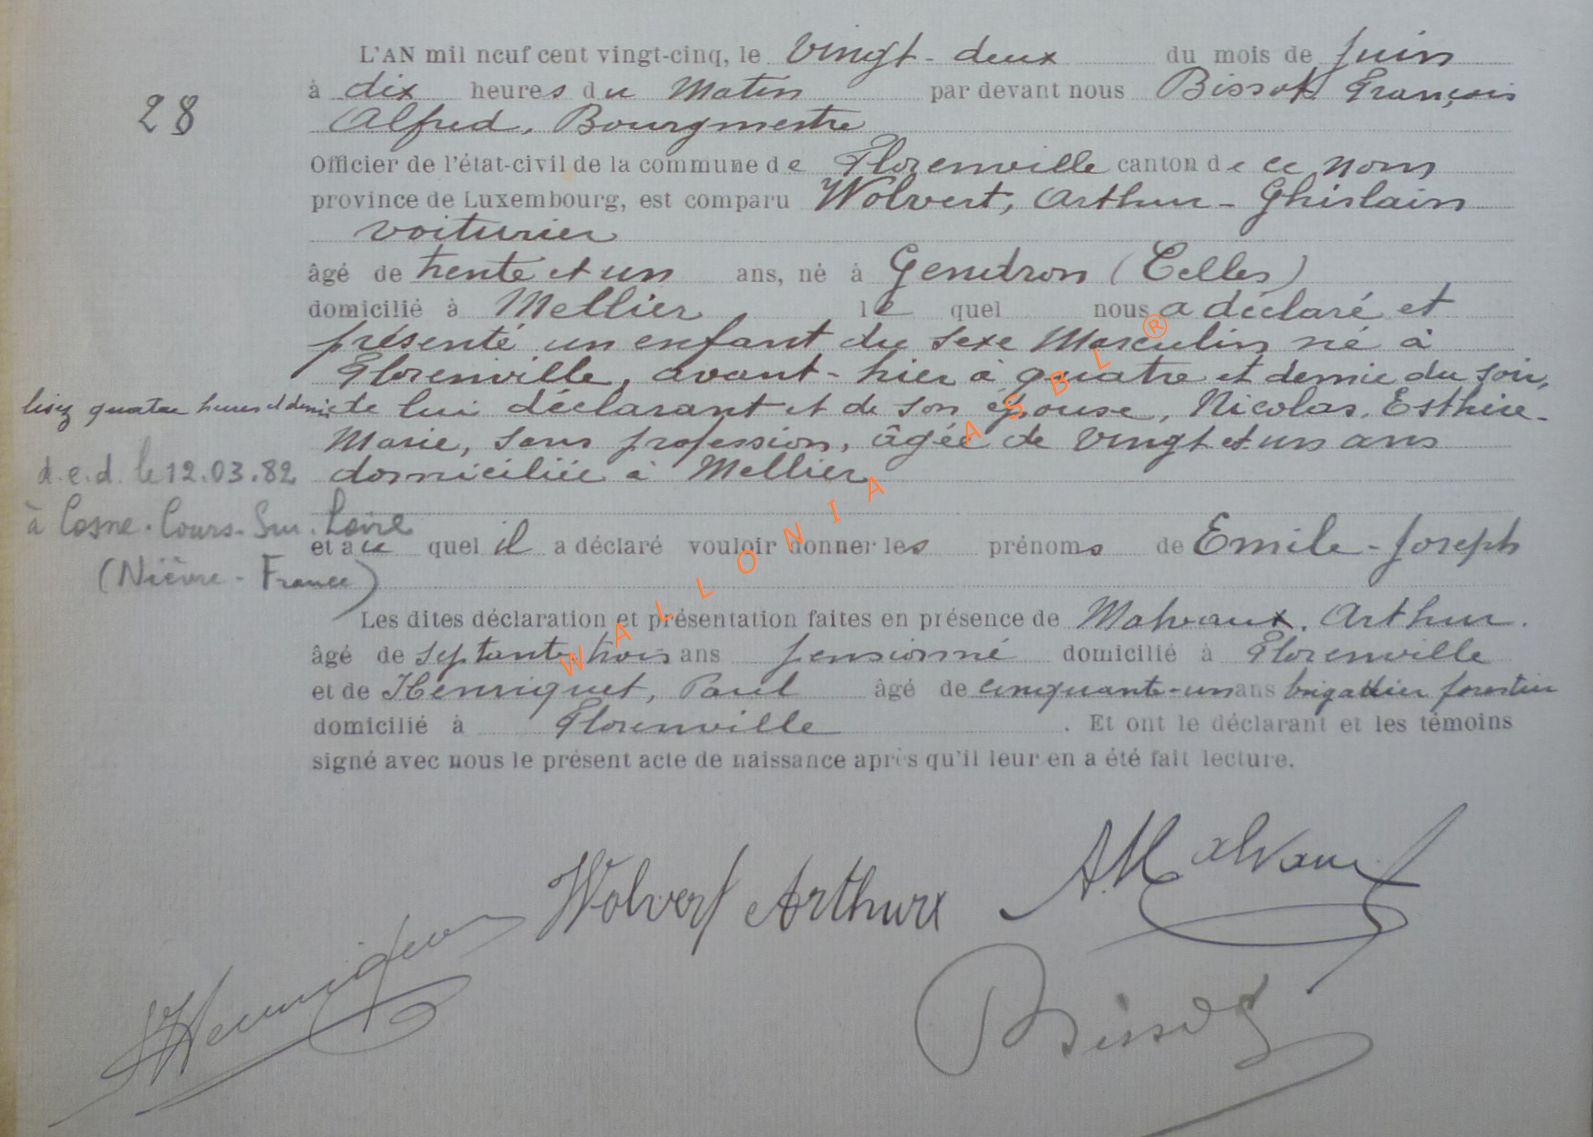 L'AN mil neuf cent vingt-cinq, le vingt-deux du mois de Juin
28
à dix heures du Matin par devant nous Bissot François
Alfred, Bourgmestre
Officier de l'état-civil de la commune de Florenville canton de ce nom
province de Luxembourg, est comparu Wolvert, Arthur-Ghislain
voiturier
âgé de trente et un ans, né à Gendron (Celles)
domicilié à Mellier le quel nous a déclaré et
présenté un enfant du sexe Masculin né à
Florenville, avant-hier à quatre et demie du soir,
lisez quatre heures et demie
de lui déclarant et de son épouse, Nicolas, Esthère-
Marie, sans profession, âgée de vingt et un ans
d.e.d. le 12.03.82
domiciliée à Mellier
à Cosne-Cours-Sur-Loire
et au quel il a déclaré vouloir donner les prénoms de Emile-Joseph
(Nièvre - France)
Les dites déclaration et présentation faites en présence de Malvaux, Arthur.
âgé de septante trois ans pensionné domicilié à Florenville
et de Henriquet, Paul âgé de cinquante-un ans brigadier forestier
domicilié à Florenville . Et ont le déclarant et les témoins
signé avec nous le présent acte de naissance après qu'il leur en a été fait lecture.
Wolvert Arthur
A. Malvaux
Henriquet
Bissot
WALLONIA ASBL ®